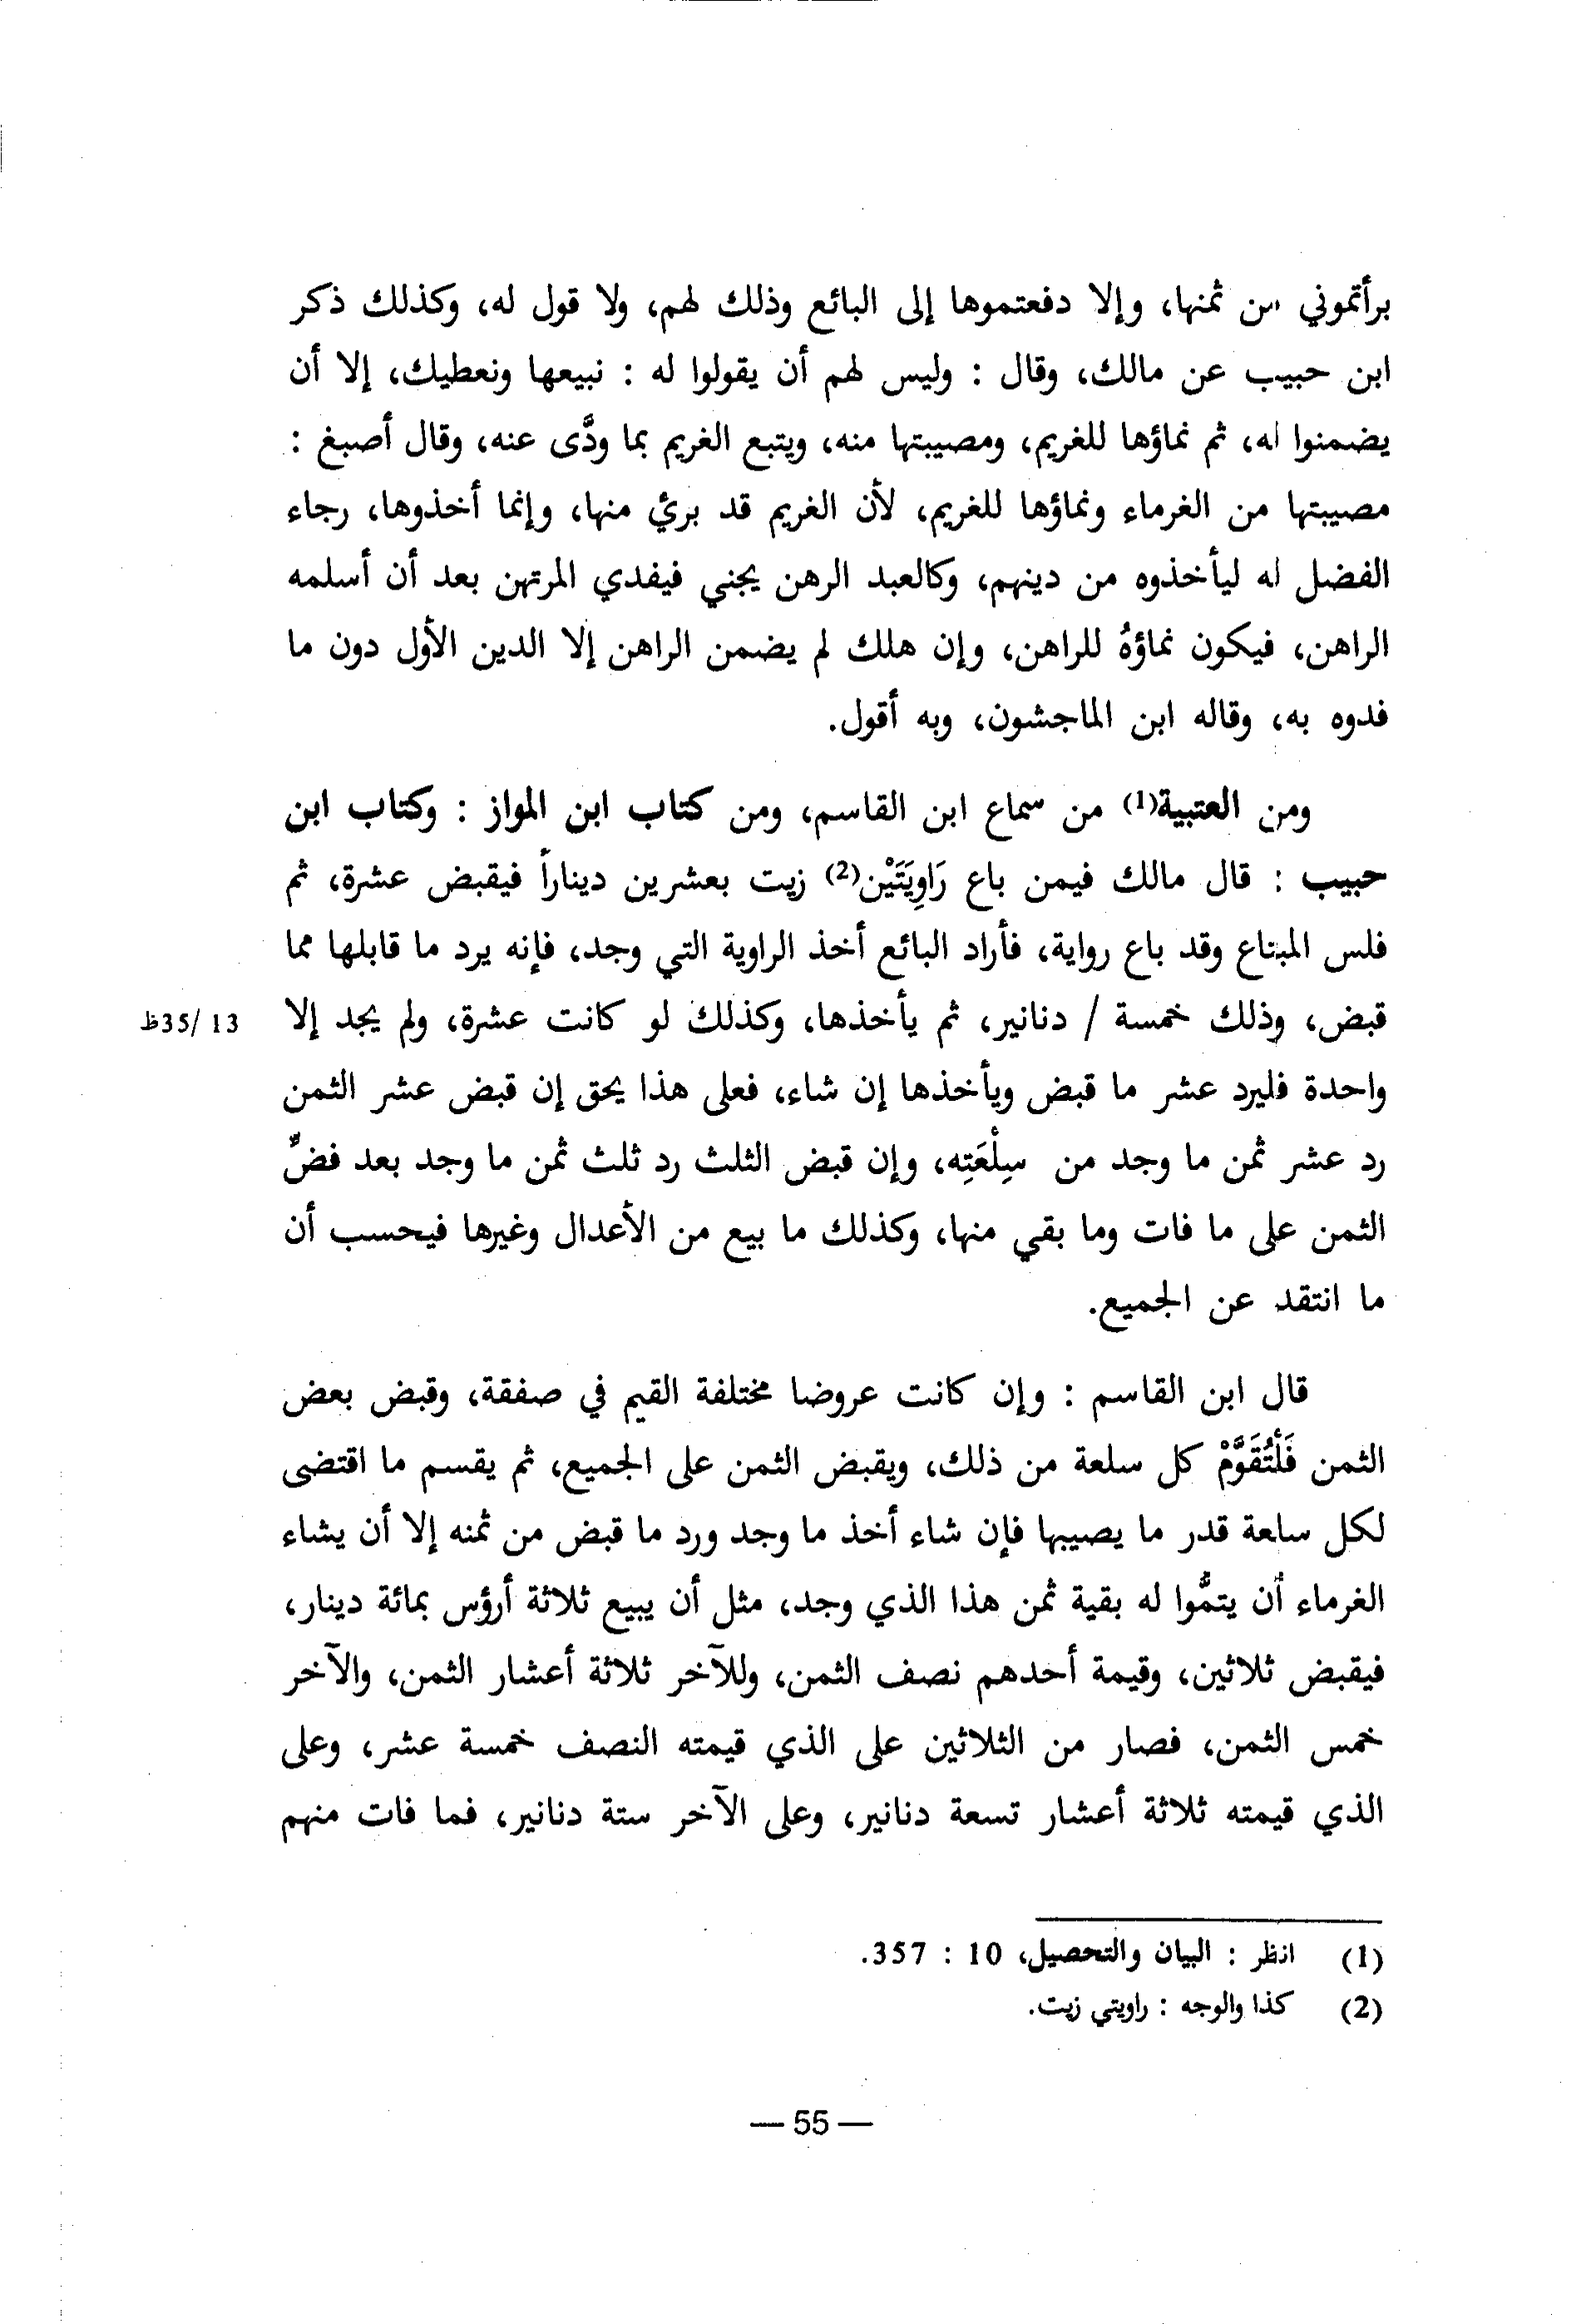 برأتموني من ثمنها، وإلا دفعتموها إلى البائع وذلك لهم، ولا قول له، وكذلك ذكر
ابن حبيب عن مالك، وقال : وليس لهم أن يقولوا له : نبيعها ونعطيك، إلا أن
يضمنوا له، ثم نماؤها للغريم، ومصيبتها منه، ويتبع الغريم بما ودَّى عنه، وقال أصبغ :
مصيبتها من الغرماء ونماؤها للغريم، لأن الغريم قد برئ منها، وإنما أخذوها، رجاء
الفضل له ليأخذوه من دينهم، وكالعبد الرهن يجني فيفدي المرتهن بعد أن أسلمه
الراهن، فيكون نماؤهُ للراهن، وإن هلك لم يضمن الراهن إلا الدين الأول دون ما
فدوه به، وقاله ابن الماجشون، وبه أقول.
ومن العتبية(1) من سماع ابن القاسم، ومن كتاب ابن المواز : وكتاب ابن
حبيب : قال مالك فيمن باع رَاوِيَتَيْن(2) زيت بعشرين ديناراً فيقبض عشرة، ثم
فلس المبتاع وقد باع رواية، فأراد البائع أخذ الراوية التي وجد، فإنه يرد ما قابلها مما
قبض، وذلك خمسة / دنانير، ثم يأخذها، وكذلك لو كانت عشرة، ولم يجد إلا
13 /35ظ
واحدة فليرد عشر ما قبض ويأخذها إن شاء، فعلى هذا يحق إن قبض عشر الثمن
رد عشر ثمن ما وجد من سِلْعَتِه، وإن قبض الثلث رد ثلث ثمن ما وجد بعد فضِّ
الثمن على ما فات وما بقي منها، وكذلك ما بيع من الأعدال وغيرها فيحسب أن
ما انتقد عن الجميع.
قال ابن القاسم : وإن كانت عروضا مختلفة القيم في صفقة، وقبض بعض
الثمن فَلْتُقَوَّمْ كل سلعة من ذلك، ويقبض الثمن على الجميع، ثم يقسم ما اقتضى
لكل سلعة قدر ما يصيبها فإن شاء أخذ ما وجد ورد ما قبض من ثمنه إلا أن يشاء
الغرماء أن يتمُّوا له بقية ثمن هذا الذي وجد، مثل أن يبيع ثلاثة أرؤس بمائة دينار،
فيقبض ثلاثين، وقيمة أحدهم نصف الثمن، وللآخر ثلاثة أعشار الثمن، والآخر
خمس الثمن، فصار من الثلاثين على الذي قيمته النصف خمسة عشر، وعلى
الذي قيمته ثلاثة أعشار تسعة دنانير، وعلى الآخر ستة دنانير، فما فات منهم
(1) انظر : البيان والتحصيل، 10 : 357.
(2) كذا والوجه : راويتي زيت.
— 55 —